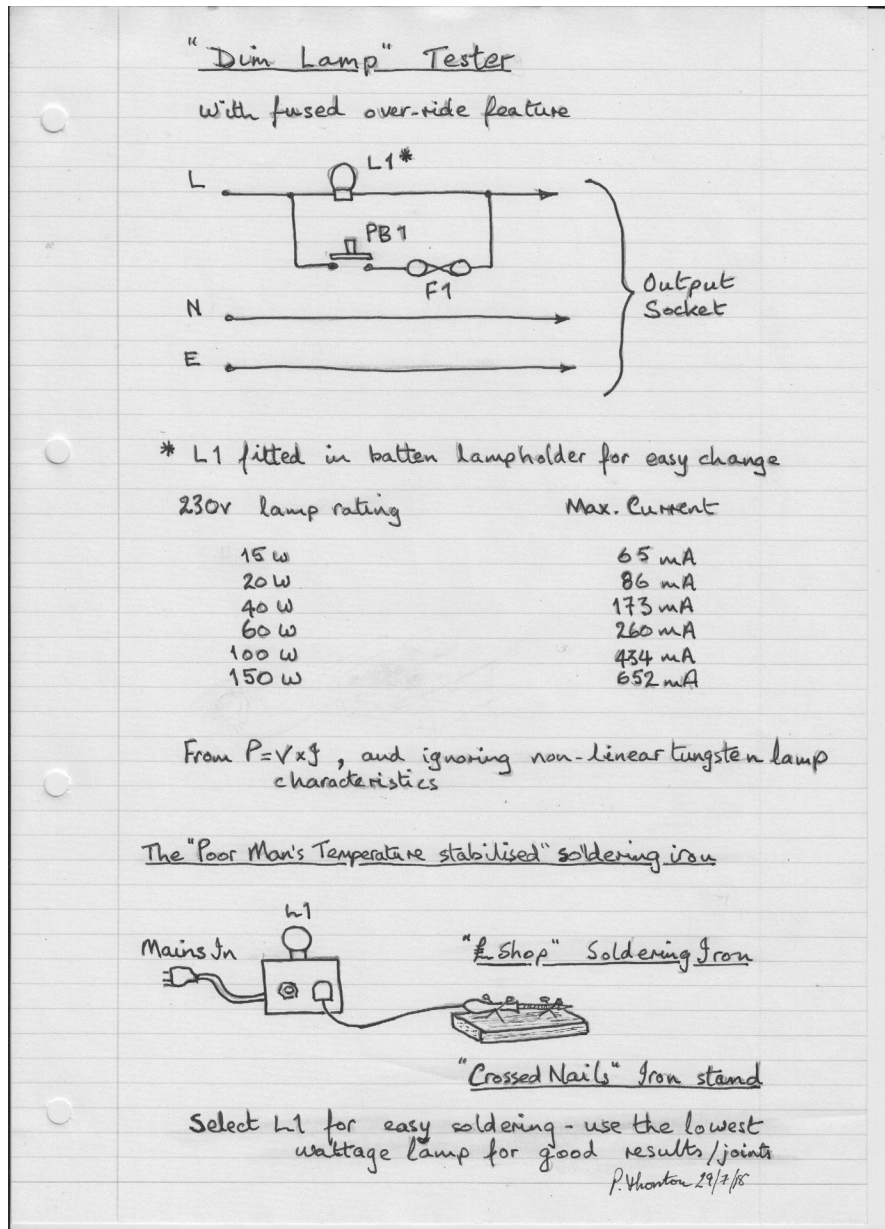 "Dim Lamp" Tester
with fused over-ride feature
L1*
L
PB1
F1
Output
Socket
N
E
* L1 fitted in batten lampholder for easy change
230v lamp rating Max. Current
15 w 65 mA
20 w 86 mA
40 w 173 mA
60 w 260 mA
100 w 434 mA
150 w 652 mA
From P=V×I, and ignoring non-linear tungsten lamp
characteristics
The "Poor Man's Temperature stabilised" soldering iron
L1
Mains In
"£ Shop" Soldering Iron
"Crossed Nails" Iron stand
Select L1 for easy soldering - use the lowest
wattage lamp for good results/joints
P. Thornton 29/7/18